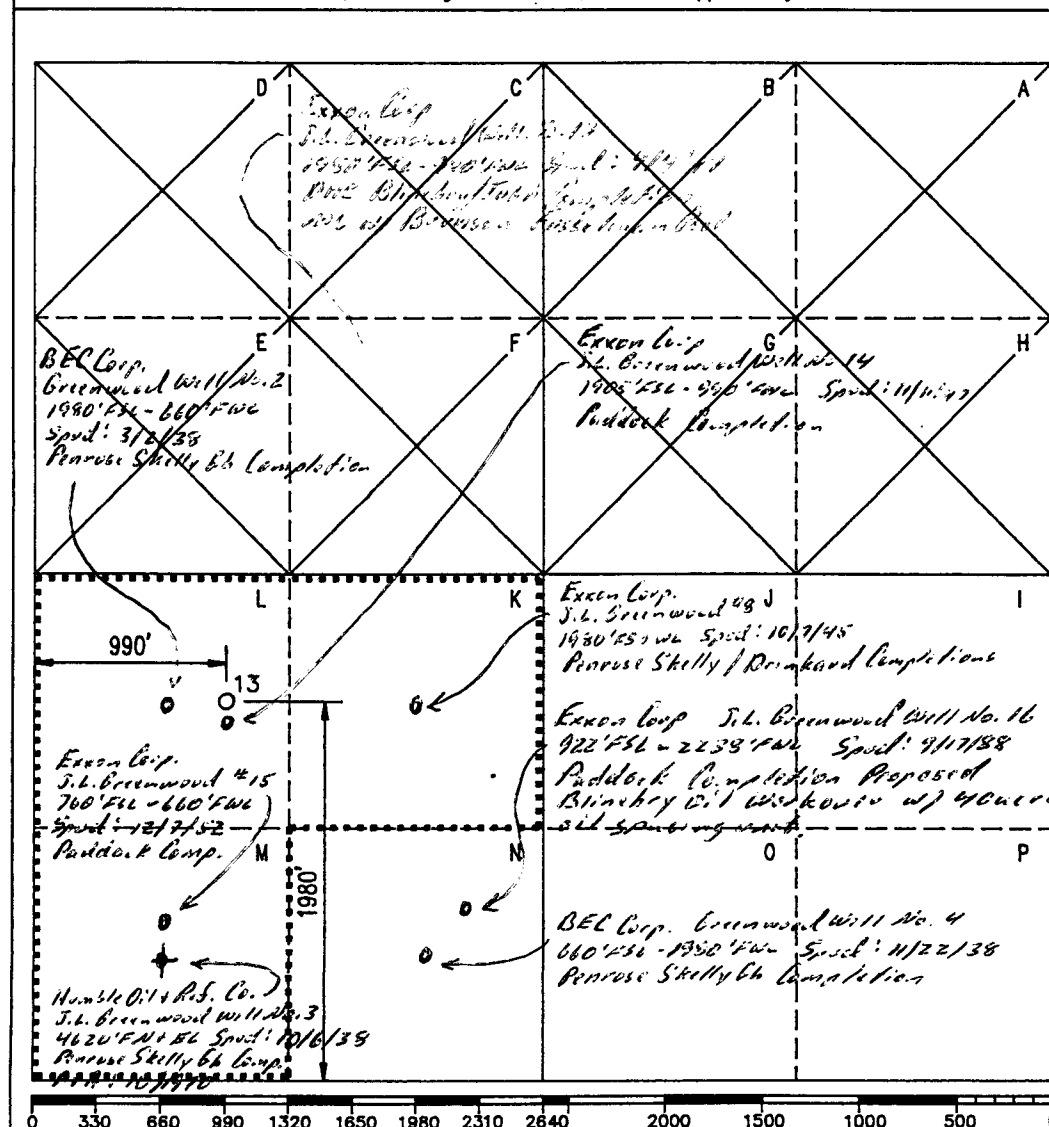 D
C
B
A
Exxon Corp
J.L. Greenwood Well
1980'FSL - Spud:
Completion
E
F
G
H
BEC Corp.
Greenwood Well No. 2
1980'FSL - 660'FWL
Spud: 3/2/38
Penrose Skelly Gb Completion
Exxon Corp
J.L. Greenwood Well No. 14
1905'FSL - 990'FWL Spud:
Paddock Completion
L
K
J
I
990'
13
Exxon Corp.
J.L. Greenwood #8
1980'FS+WL Spud: 10/7/45
Penrose Skelly / Drinkard Completions
Exxon Corp J.L. Greenwood Well No. 16
922'FSL - 2238'FWL Spud: 9/17/88
Paddock Completion Proposed
Blinebry Oil Workover w/
oil spacing unit.
Exxon Corp.
J.L. Greenwood #15
760'FSL - 660'FWL
Spud: 12/7/52
Paddock Comp.
M
N
O
P
1980'
BEC Corp. Greenwood Well No. 4
660'FSL - 1980'FWL Spud: 11/22/38
Penrose Skelly Gb Completion
Humble Oil + Ref. Co.
J.L. Greenwood Well No. 3
4620'FN+EL Spud: 10/6/38
Penrose Skelly Gb Comp.
0 330 660 990 1320 1650 1980 2310 2640 2000 1500 1000 500